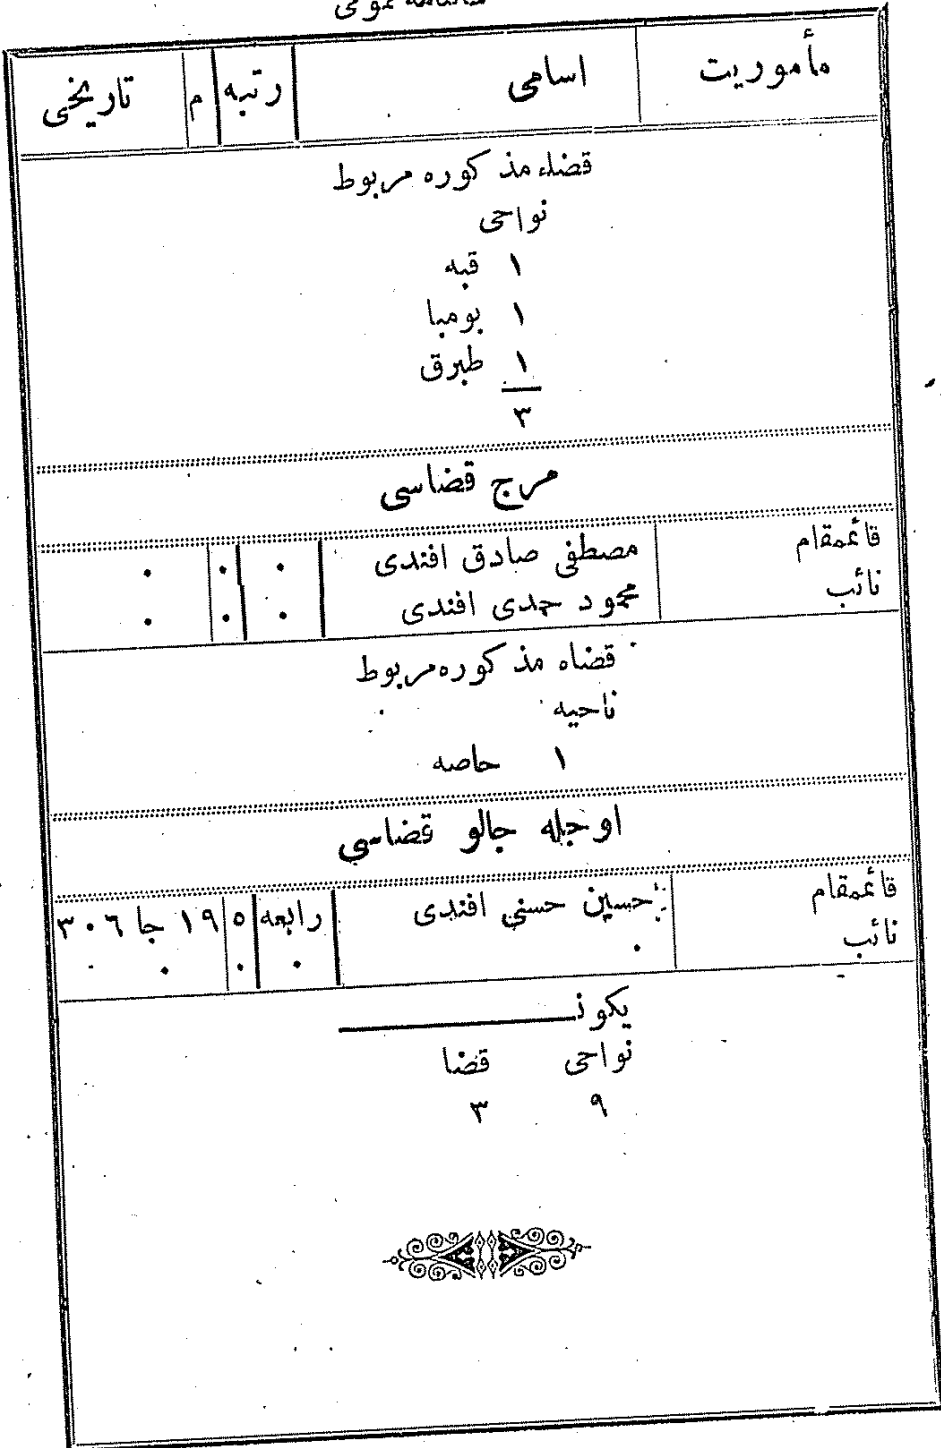 مأموريت اسامى رتبه م تاريخى
قضاء مذكوره مربوط
نواحى
١ قبه
١ بومبا
١ طبرق
٣
مرج قضاسى
قائممقام مصطفى صادق افندى ٠ ٠ ٠
نائب محمود حمدى افندى ٠ ٠ ٠
قضاه مذكوره مربوط
ناحيه
١ حاصه
اوجله جالو قضاسى
قائممقام حسين حسنى افندى رابعه ٥ ١٩ جا ٣٠٦
نائب ٠ ٠ ٠ ٠
يكون
نواحى قضا
٩ ٣